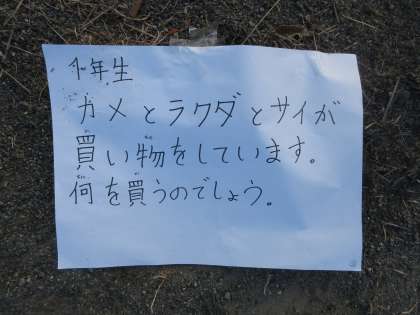 1年生
カメとラクダとサイが
買い物をしています。
何を買うのでしょう。